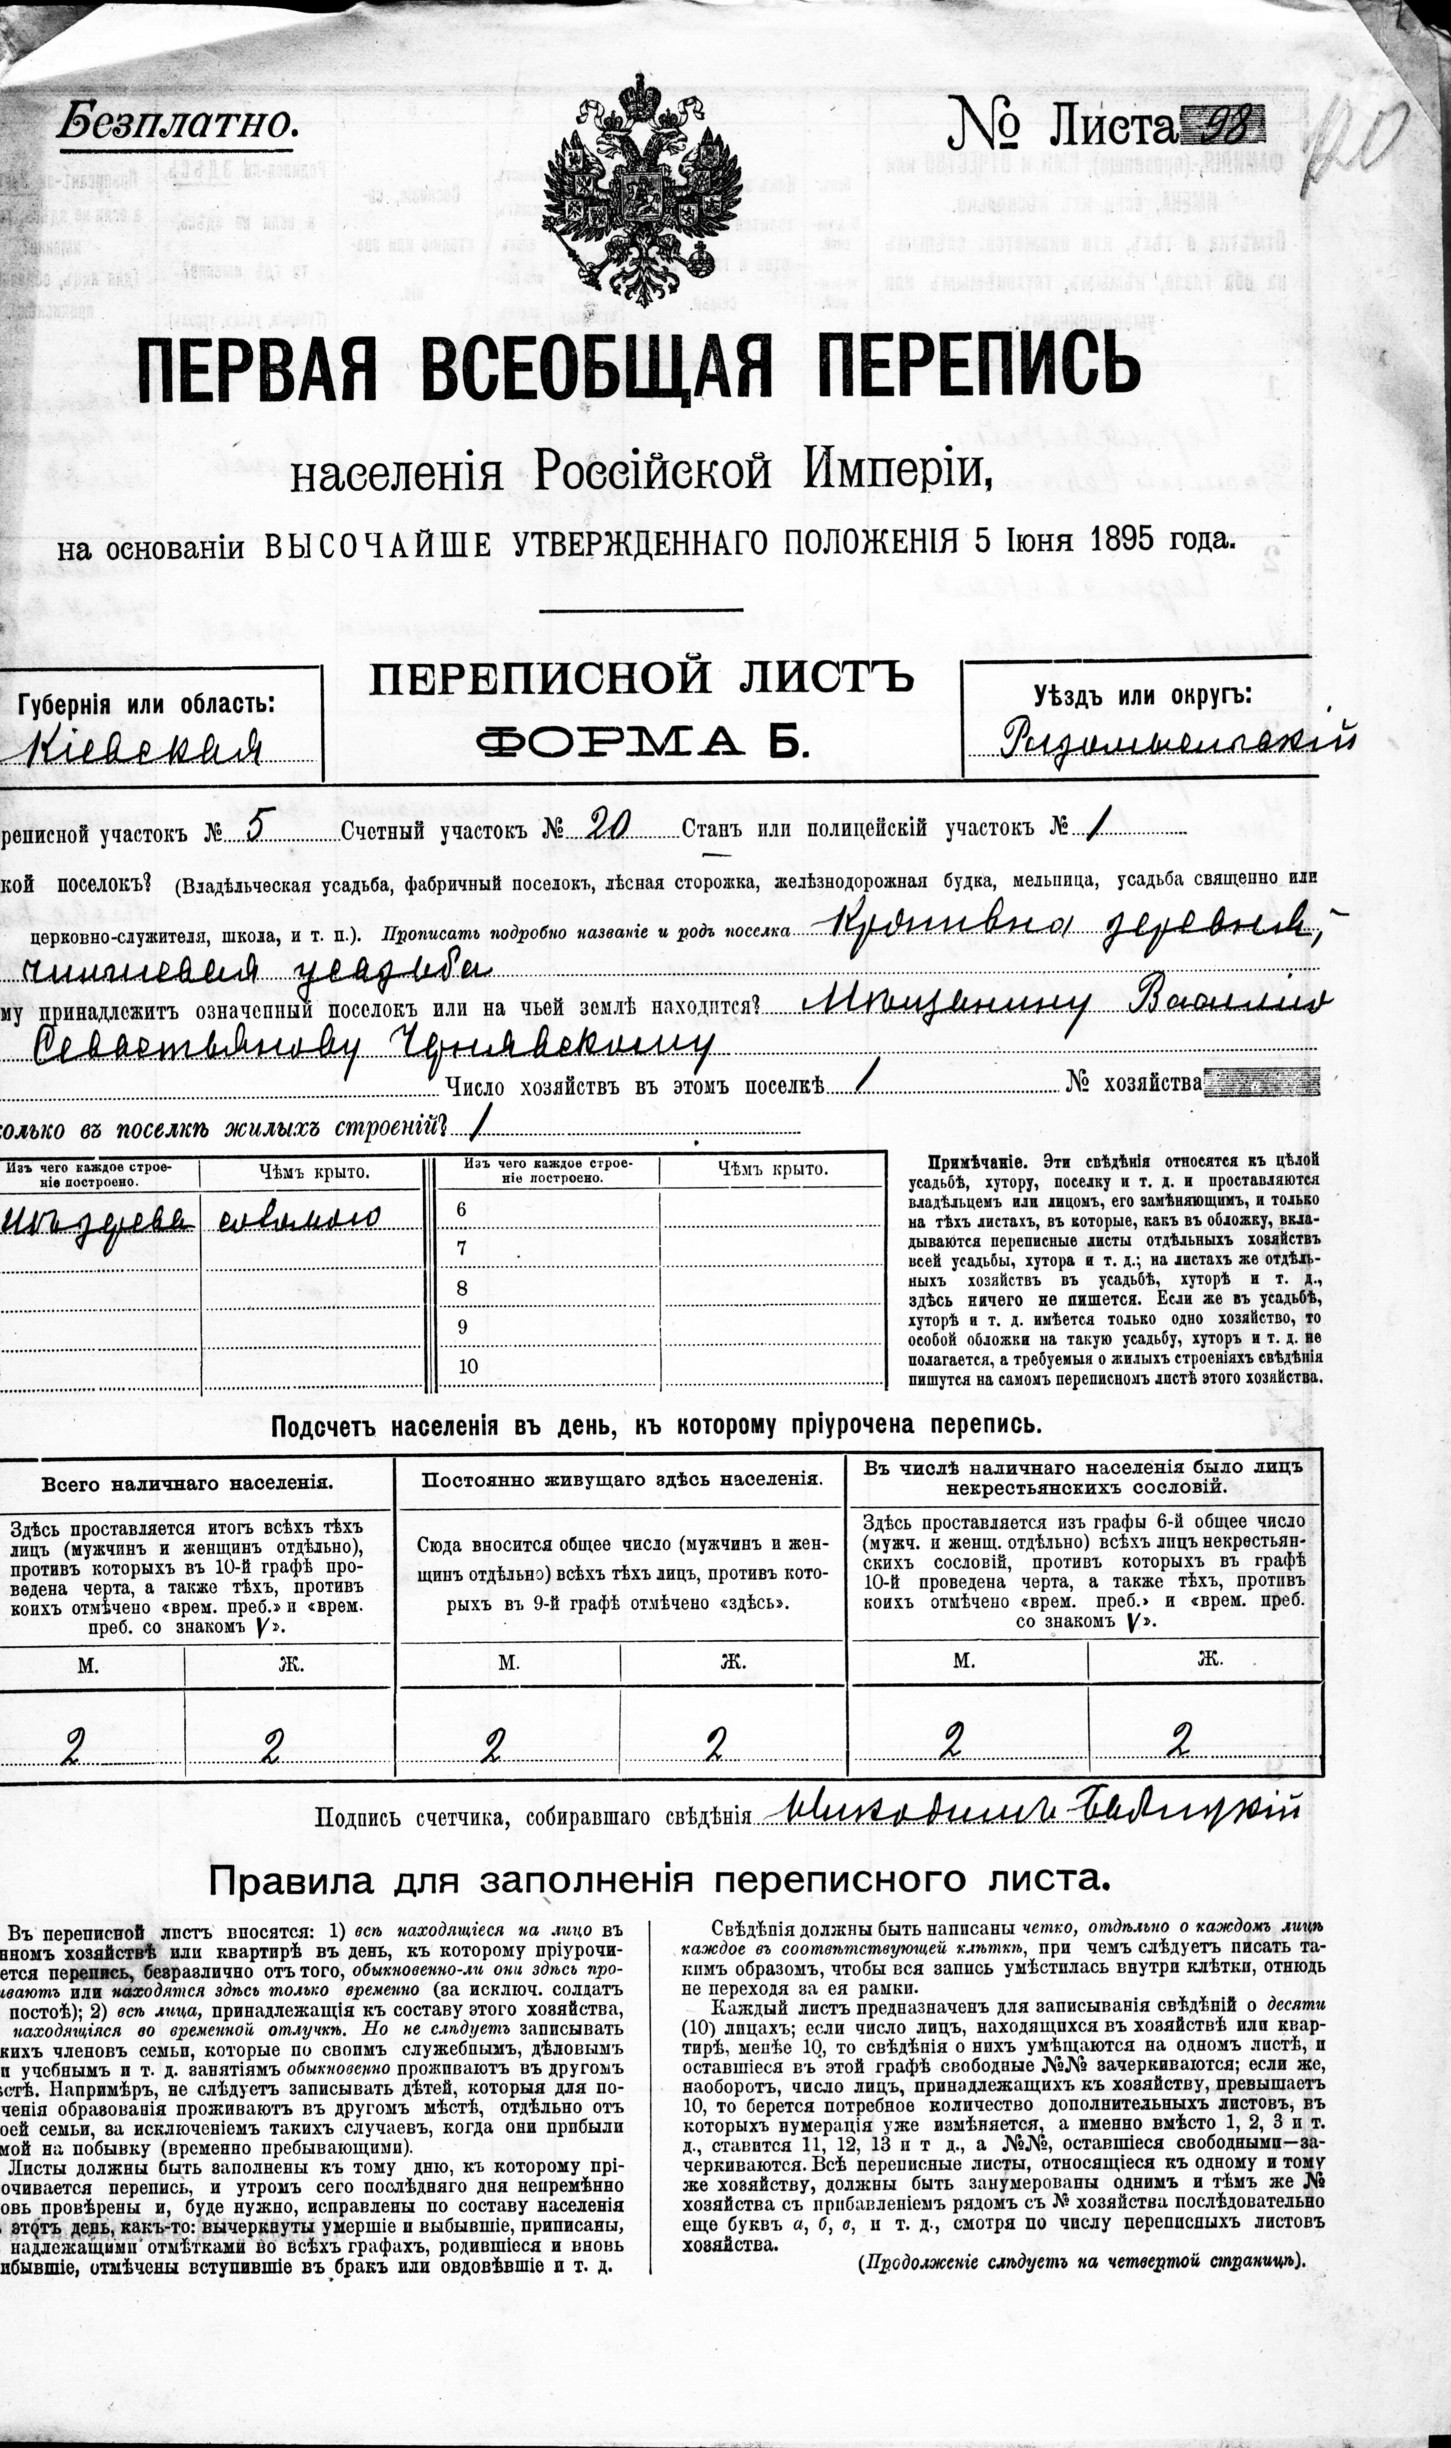 Безплатно.
№ Листа 98
ПЕРВАЯ ВСЕОБЩАЯ ПЕРЕПИСЬ
населенія Россійской Имперіи,
на основаніи ВЫСОЧАЙШЕ УТВЕРЖДЕННАГО ПОЛОЖЕНІЯ 5 Іюня 1895 года.
ПЕРЕПИСНОЙ ЛИСТЪ
ФОРМА Б.
Губернія или область:
Кіевская
Уѣздъ или округъ:
Радомысльскій
реписной участокъ № 5 Счетный участокъ № 20 Станъ или полицейскій участокъ № 1
кой поселокъ? (Владѣльческая усадьба, фабричный поселокъ, лѣсная сторожка, желѣзнодорожная будка, мельница, усадьба священно или
церковно-служителя, школа, и т. п.). Прописать подробно названіе и родъ поселка Кропивна деревня,
чиншевая усадьба
му принадлежитъ означенный поселокъ или на чьей землѣ находится? Мѣщанину Василію
Севастьянову Чернявскому
Число хозяйствъ въ этомъ поселкѣ 1 № хозяйства
олько въ поселкѣ жилыхъ строеній? 1
Изъ чего каждое строе-
ніе построено.
Чѣмъ крыто.
Изъ чего каждое строе-
ніе построено.
Чѣмъ крыто.
изъ дерева соломою
6
7
8
9
10
Примѣчаніе. Эти свѣдѣнія относятся къ цѣлой
усадьбѣ, хутору, поселку и т. д. и проставляются
владѣльцемъ или лицомъ, его замѣняющимъ, и только
на тѣхъ листахъ, въ которые, какъ въ обложку, вкла-
дываются переписные листы отдѣльныхъ хозяйствъ
всей усадьбы, хутора и т. д.; на листахъ же отдѣль-
ныхъ хозяйствъ въ усадьбѣ, хуторѣ и т. д.,
здѣсь ничего не пишется. Если же въ усадьбѣ,
хуторѣ и т. д. имѣется только одно хозяйство, то
особой обложки на такую усадьбу, хуторъ и т. д. не
полагается, а требуемыя о жилыхъ строеніяхъ свѣдѣнія
пишутся на самомъ переписномъ листѣ этого хозяйства.
Подсчетъ населенія въ день, къ которому пріурочена перепись.
Всего наличнаго населенія.
Здѣсь проставляется итогъ всѣхъ тѣхъ
лицъ (мужчинъ и женщинъ отдѣльно),
противъ которыхъ въ 10-й графѣ про-
ведена черта, а также тѣхъ, противъ
коихъ отмѣчено «врем. преб.» и «врем.
преб. со знакомъ V».
Постоянно живущаго здѣсь населенія.
Сюда вносится общее число (мужчинъ и жен-
щинъ отдѣльно) всѣхъ тѣхъ лицъ, противъ кото-
рыхъ въ 9-й графѣ отмѣчено «здѣсь».
Въ числѣ наличнаго населенія было лицъ
некрестьянскихъ сословій.
Здѣсь проставляется изъ графы 6-й общее число
(мужч. и женщ. отдѣльно) всѣхъ лицъ некрестьян-
скихъ сословій, противъ которыхъ въ графѣ
10-й проведена черта, а также тѣхъ, противъ
коихъ отмѣчено «врем. преб.» и «врем. преб.
со знакомъ V».
М. Ж. М. Ж. М. Ж.
2 2 2 2 2 2
Подпись счетчика, собиравшаго свѣдѣнія Никодимъ
Правила для заполненія переписного листа.
Въ переписной листъ вносятся: 1) всѣ находящіеся на лицо въ
нномъ хозяйствѣ или квартирѣ въ день, къ которому пріурочи-
ется перепись, безразлично отъ того, обыкновенно-ли они здѣсь про-
иваютъ или находятся здѣсь только временно (за исключ. солдатъ
постоѣ); 2) всѣ лица, принадлежащія къ составу этого хозяйства,
находящіяся во временной отлучкѣ. Но не слѣдуетъ записывать
кихъ членовъ семьи, которые по своимъ служебнымъ, дѣловымъ
и учебнымъ и т. д. занятіямъ обыкновенно проживаютъ въ другомъ
стѣ. Напримѣръ, не слѣдуетъ записывать дѣтей, которыя для по-
ченія образованія проживаютъ въ другомъ мѣстѣ, отдѣльно отъ
оей семьи, за исключеніемъ такихъ случаевъ, когда они прибыли
мой на побывку (временно пребывающими).
Листы должны быть заполнены къ тому дню, къ которому прі-
очивается перепись, и утромъ сего послѣдняго дня непремѣнно
овь провѣрены и, буде нужно, исправлены по составу населенія
этотъ день, какъ-то: вычеркнуты умершіе и выбывшіе, приписаны,
надлежащими отмѣтками во всѣхъ графахъ, родившіеся и вновь
ибывшіе, отмѣчены вступившіе въ бракъ или овдовѣвшіе и т. д.
Свѣдѣнія должны быть написаны четко, отдѣльно о каждомъ лицѣ
каждое въ соотвѣтствующей клѣткѣ, при чемъ слѣдуетъ писать та-
кимъ образомъ, чтобы вся запись умѣстилась внутри клѣтки, отнюдь
не переходя за ея рамки.
Каждый листъ предназначенъ для записыванія свѣдѣній о десяти
(10) лицахъ; если число лицъ, находящихся въ хозяйствѣ или квар-
тирѣ, менѣе 10, то свѣдѣнія о нихъ умѣщаются на одномъ листѣ, и
оставшіеся въ этой графѣ свободные №№ зачеркиваются; если же,
наоборотъ, число лицъ, принадлежащихъ къ хозяйству, превышаетъ
10, то берется потребное количество дополнительныхъ листовъ, въ
которыхъ нумерація уже измѣняется, а именно вмѣсто 1, 2, 3 и т.
д., ставится 11, 12, 13 и т д., а №№, оставшіеся свободными—за-
черкиваются. Всѣ переписные листы, относящіеся къ одному и тому
же хозяйству, должны быть занумерованы однимъ и тѣмъ же №
хозяйства съ прибавленіемъ рядомъ съ № хозяйства послѣдовательно
еще буквъ а, б, в, и т. д., смотря по числу переписныхъ листовъ
хозяйства.
(Продолженіе слѣдуетъ на четвертой страницѣ).